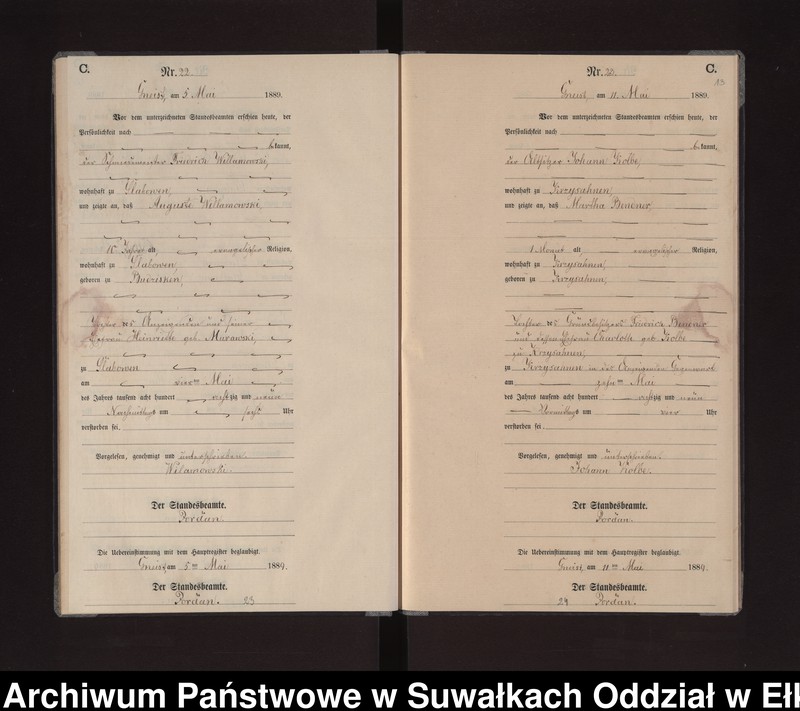 C.
Nr. 29
Gneist, am 5 Mai 1889.
Vor dem unterzeichneten Standesbeamten erschien heute, der
Persönlichkeit nach
bekannt,
der Schmiedemeister Friedrich Willamowski,
wohnhaft zu Glabowen,
und zeigte an, daß Auguste Willamowski,
Jahre alt, evangelischer Religion,
wohnhaft zu Glabowen,
geboren zu
Tochter des Anzeigenden und seiner
Ehefrau Heinriette geb. Murawski,
zu Glabowen
am vier ten Mai
des Jahres tausend acht hundert achtzig und neun
Nachmittags um Uhr
verstorben sei.
Vorgelesen, genehmigt und unterschrieben.
Willamowski.
Der Standesbeamte.
Jordan.
Die Uebereinstimmung mit dem Hauptregister beglaubigt.
Gneist, am 5ten Mai 1889.
Der Standesbeamte.
Jordan. 23
Nr. 30. C.
Gneist, am 11. Mai 1889.
Vor dem unterzeichneten Standesbeamten erschien heute, der
Persönlichkeit nach
bekannt,
der Altsitzer Johann Kolbe,
wohnhaft zu Krzysahnen,
und zeigte an, daß Martha
1 Monat alt evangelischer Religion,
wohnhaft zu Krzysahnen,
geboren zu Krzysahnen,
Tochter des Grundbesitzers Friedrich
und Charlotte geb. Kolbe
zu Krzysahnen,
zu Krzysahnen in des Anzeigenden Gegenwart
am zehn ten Mai
des Jahres tausend acht hundert achtzig und neun
Vormittags um vier Uhr
verstorben sei.
Vorgelesen, genehmigt und unterschrieben.
Johann Kolbe.
Der Standesbeamte.
Jordan.
Die Uebereinstimmung mit dem Hauptregister beglaubigt.
Gneist, am 11ten Mai 1889.
Der Standesbeamte.
24 Jordan.
Archiwum Państwowe w Suwałkach Oddział w Ełk